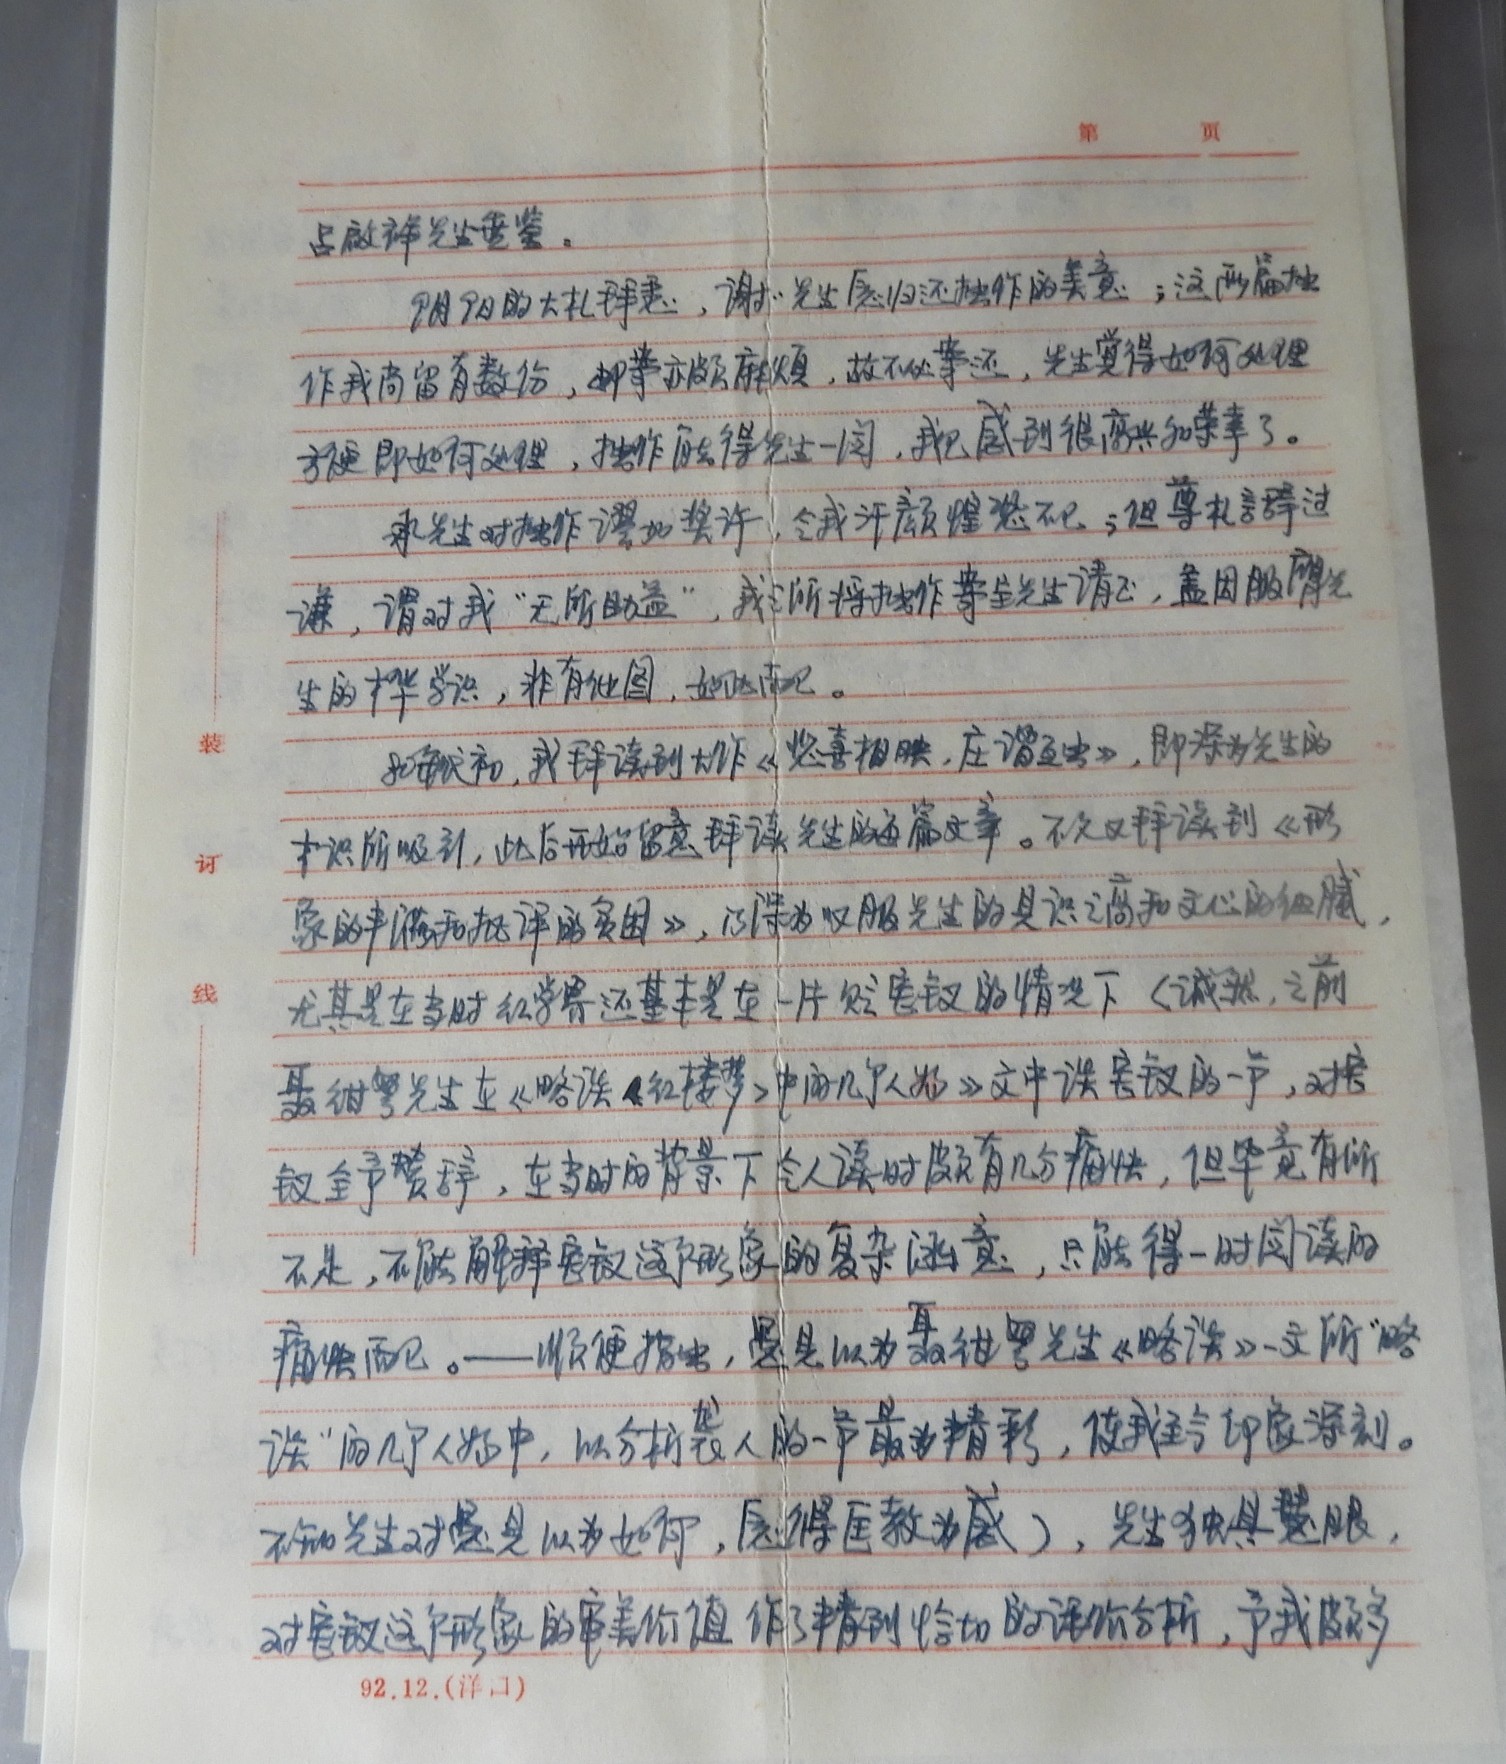 第 页
吕啟祥先生垂鉴。
9月9日的大札拜悉，谢谢先生愿归还拙作的美意；这两篇拙
作我尚留有数份，邮寄亦颇麻烦，故不必寄还，先生觉得如何处理
方便即如何处理，拙作能得先生一阅，我已感到很高兴和荣幸了。
承先生对拙作谬加奖许，令我汗颜惶恐不已；但尊札言辞过
谦，谓对我“无所助益”，我之所将拙作寄呈先生请正，盖因服膺先
生的才华学识，非有他图，如此而已。
初，我拜读到大作《悲喜相映，庄谐互出》，即深为先生的
才识所吸引，此后开始留意拜读先生的每篇文章。不久又拜读到《形
象的丰满和批评的贫困》，乃深为叹服先生的见识之高和文心的细腻，
尤其是在当时红学界还基本是在一片贬宝钗的情况下（诚然，之前
聂绀弩先生在《略谈《红楼梦》中的几个人物》文中谈宝钗的一节，对宝
钗全予赞辞，在当时的背景下令人读时颇有几分痛快，但毕竟有所
不足，不能解释宝钗这个形象的复杂涵意，只能得一时阅读的
痛快而已。——顺便指出，愚见以为聂绀弩先生《略谈》一文所“略
谈”的几个人物中，以分析袭人的一节最为精彩，使我至今印象深刻。
不知先生对愚见以为如何，愿得匡教为感），先生独具慧眼，
对宝钗这个形象的审美价值作了精到恰切的评价分析，予我颇多
装
订
线
92.12.(洋口)